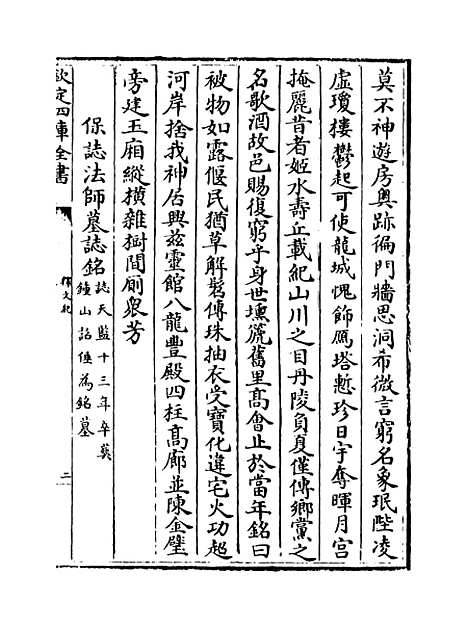 莫不神遊房奥跡徧門牆思洞希微言窮名象珉陛凌
虛瓊樓鬱起可使龍城愧飾鴈塔慙珍日宇奪暉月宮
掩麗昔者姬水壽丘載紀山川之目丹陵負夏僅傳鄉黨之
名歌酒故邑賜復窮乎身世壎箎舊里髙會止於當年銘曰
被物如露偃民猶草解髻傳珠抽衣受寶化違宅火功超
河岸捨我神居興兹靈館八龍豐殿四柱髙廊並陳金璧
旁建玉廂縱横雜樹間厠衆芳
保誌法師墓誌銘
誌天監十三年卒葬
鍾山詔倕為銘墓
欽定四庫全書
釋文紀
二